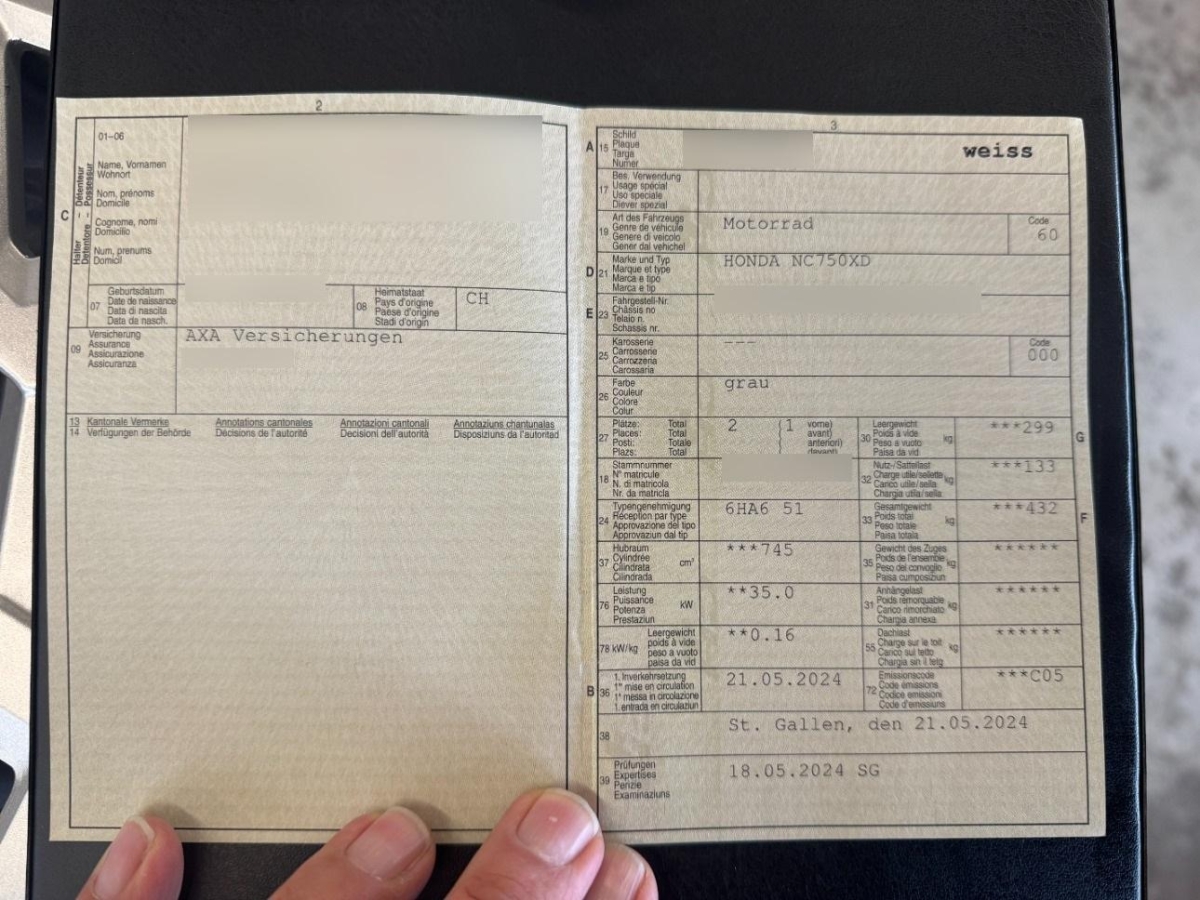 2
01–06
Name, Vornamen
Wohnort
Nom, prénoms
Domicile
Cognome, nomi
Domicilio
Num, prenums
Domicil
C
Halter – Détenteur
Detentore – Possessur
07
Geburtsdatum
Date de naissance
Data di nascita
Data da nasch.
08
Heimatstaat
Pays d'origine
Paese d'origine
Stadi d'origin
CH
09
Versicherung
Assurance
Assicurazione
Assicuranza
AXA Versicherungen
13 Kantonale Vermerke Annotations cantonales Annotazioni cantonali Annotaziuns chantunalas
14 Verfügungen der Behörde Décisions de l'autorité Decisioni dell'autorità Disposiziuns da l'autoritad
3
A 15
Schild
Plaque
Targa
Numer
weiss
17
Bes. Verwendung
Usage spécial
Uso speciale
Diever spezial
19
Art des Fahrzeugs
Genre de véhicule
Genere di veicolo
Gener dal vehichel
Motorrad
Code
60
D 21
Marke und Typ
Marque et type
Marca e tipo
Marca e tip
HONDA NC750XD
E 23
Fahrgestell-Nr.
Châssis no
Telaio n.
Schassis nr.
25
Karosserie
Carrosserie
Carrozzeria
Carossaria
---
Code
000
26
Farbe
Couleur
Colore
Colur
grau
27
Plätze: Total
Places: Total
Posti: Totale
Plazs: Total
2 (1 vorne)
avant)
anteriori)
davant)
30
Leergewicht
Poids à vide
Peso a vuoto
Paisa da vid
kg
***299
G
18
Stammnummer
N° matricule
N. di matricola
Nr. da matricla
32
Nutz-/Sattellast
Charge utile/sellette
Carico utile/sella
Chargia utila/sella
kg
***133
24
Typengenehmigung
Réception par type
Approvazione del tipo
Approvaziun dal tip
6HA6 51
33
Gesamtgewicht
Poids total
Peso totale
Paisa totala
kg
***432
F
37
Hubraum
Cylindrée
Cilindrata
Cilindrada
cm³
***745
35
Gewicht des Zuges
Poids de l'ensemble
Peso del convoglio
Paisa cumposiziun
kg
******
76
Leistung
Puissance
Potenza
Prestaziun
kW
**35.0
31
Anhängelast
Poids remorquable
Carico rimorchiato
Chargia annexa
kg
******
78 kW/kg
Leergewicht
poids à vide
peso a vuoto
paisa da vid
**0.16
55
Dachlast
Charge sur le toit
Carico sul tetto
Chargia sin il tetg
kg
******
B 36
1. Inverkehrsetzung
1re mise en circulation
1a messa in circolazione
1. entrada en circulaziun
21.05.2024
72
Emissionscode
Code émissions
Codice emissioni
Code d'emissiuns
***C05
38
St. Gallen, den 21.05.2024
39
Prüfungen
Expertises
Perizie
Examinaziuns
18.05.2024 SG